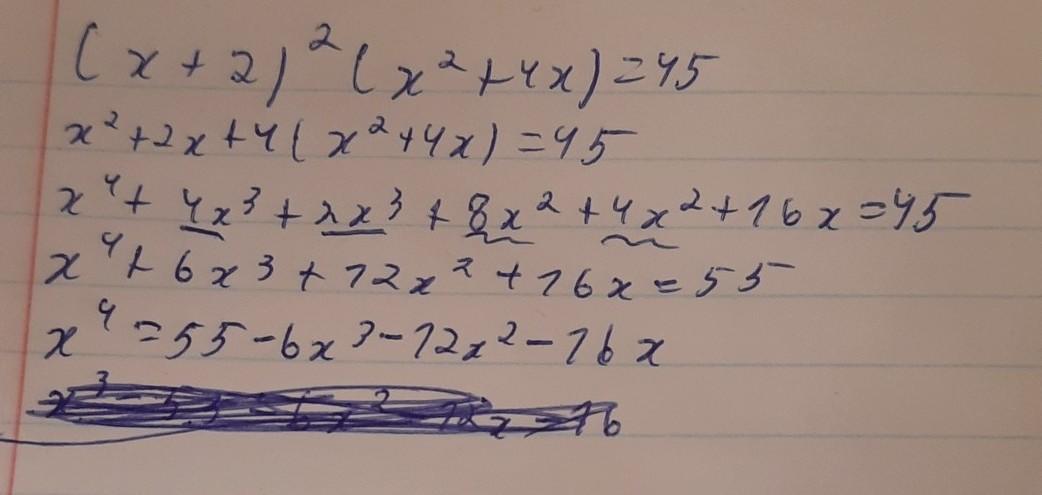 (x+2)²(x²+4x)=45
x²+2x+4(x²+4x)=45
x⁴+4x³+2x³+8x²+4x²+16x=45
x⁴+6x³+12x²+16x=55
x⁴=55-6x³-12x²-16x